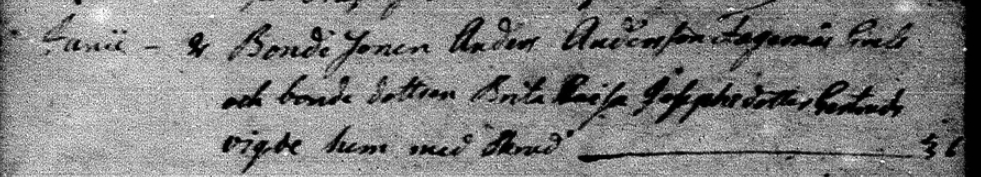 Junii - Bonde Sonen Anders Andersson Fagernäs
och bonde dottren Brita Kaisa Josephsdotter
vigde hem med Skrud